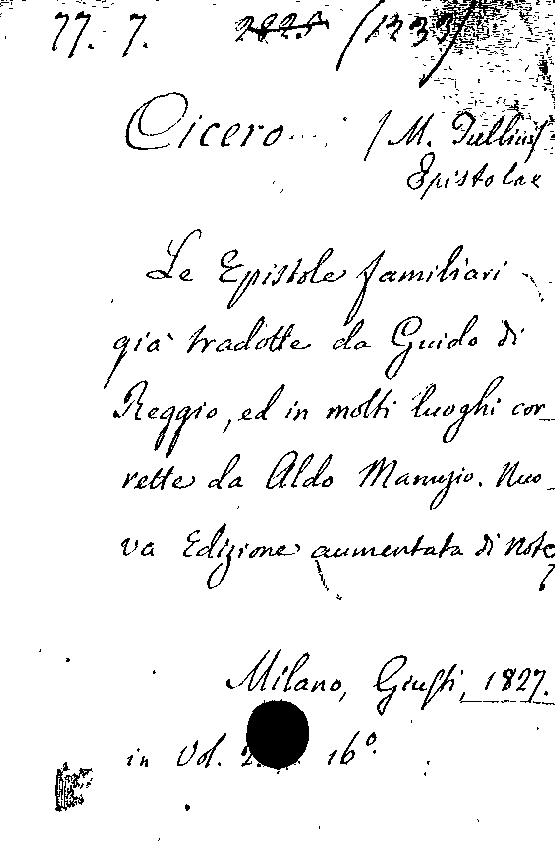 77. 7. 2825 (1233)
Cicero (M. Tullius)
Epistolae
Le Epistole familiari
già tradotte da Guido di
Reggio, ed in molti luoghi cor_
rette da Aldo Manuzio. Nuo_
va Edizione aumentata di Note
Milano, Giusti, 1827.
in Vol. 2. 16º.